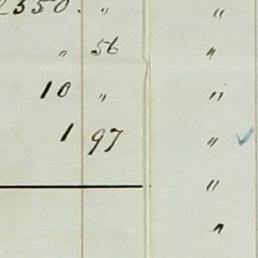 2350. " "
" 56 "
10 " "
1 97 " ✓
"
"